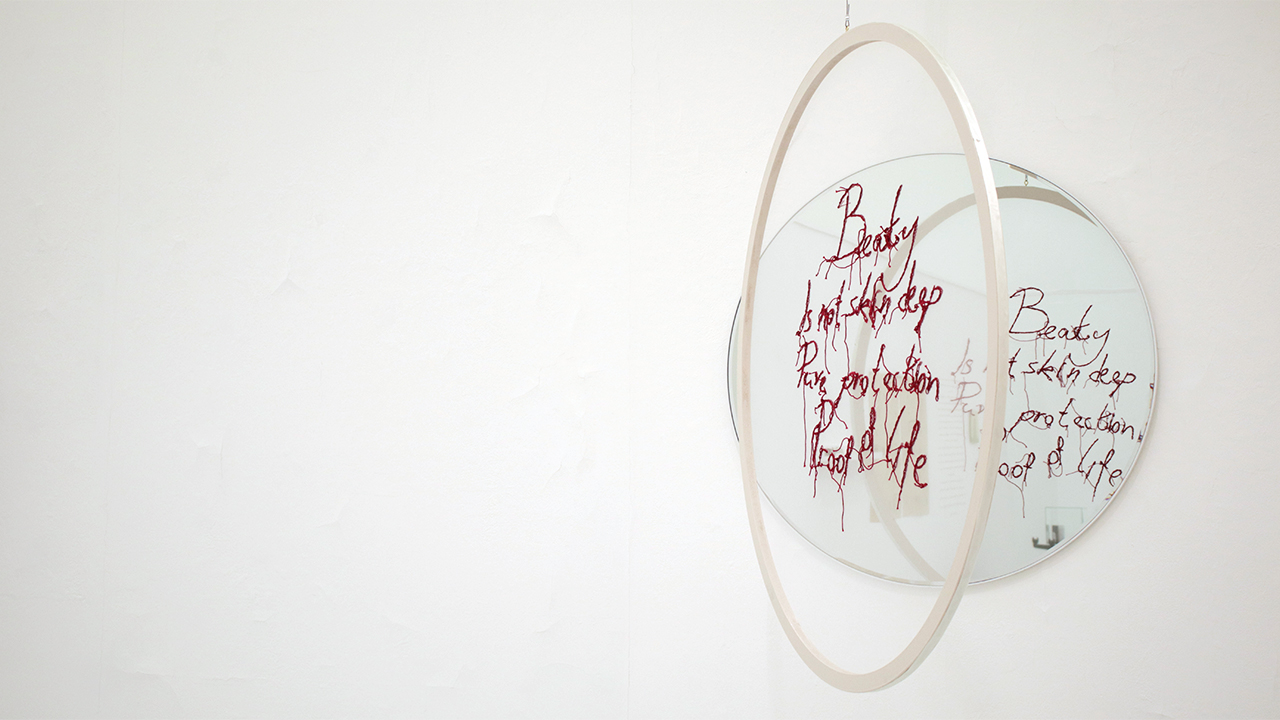 Beaty
Is not skin deep
Pure protection
Proof of life
Beaty
Is skin deep
protection
of life